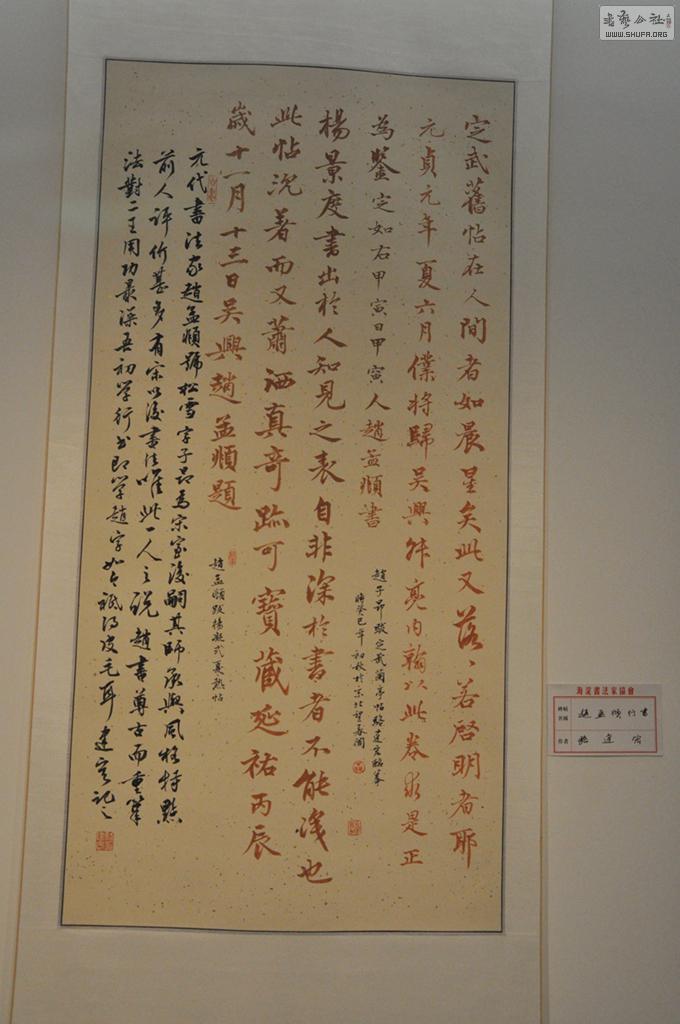 定武舊帖在人間者如晨星矣此又落、若啓明者耶
元貞元年夏六月僕將歸吳興舛亮内翰以此卷求是正
為鑒定如右甲寅日甲寅人趙孟頫書
趙子昂跋定武蘭亭帖駱建宏臨摹
時癸巳年初秋於京北望春閣
楊景度書出於人知見之表自非深於書者不能識也
此帖沉著而又蕭洒真奇跡可寶藏延祐丙辰
歲十一月十三日吳興趙孟頫題
趙孟頫跋楊凝式夏熱帖
元代書法家趙孟頫號松雪字子昂為宋室後嗣其師承與風格特點
前人評价甚多有宋以後書法唯此一人之說趙書尊古而重筆
法對二王用功最深吾初學行书即學趙字如今祇得皮毛耳建宏記之
海淀書法家協會
趙孟頫行書
作者
駱建宏
書藝公社
WWW.SHUFA.ORG